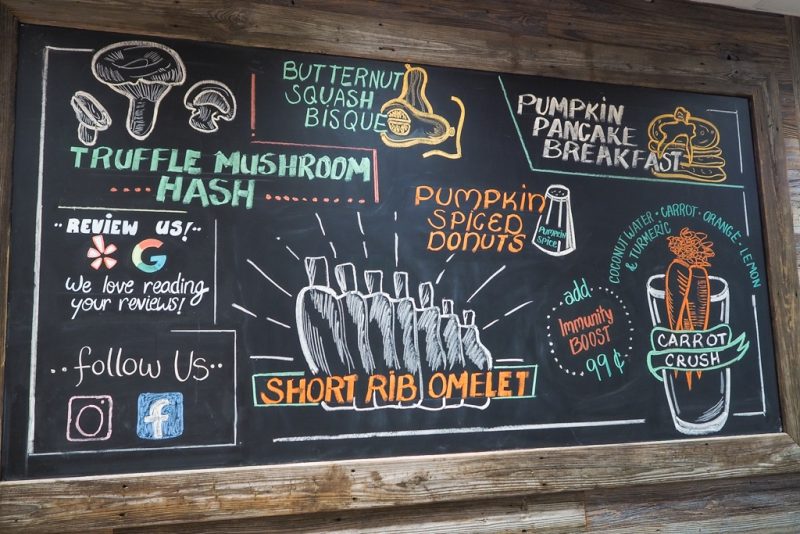 BUTTERNUT
SQUASH
BISQUE
PUMPKIN
PANCAKE
BREAKFAST
TRUFFLE MUSHROOM
HASH
PUMPKIN
SPICED
DONUTS
PUMPKIN
SPICE
REVIEW US!
We love reading
your reviews!
G
COCONUT WATER • CARROT • ORANGE • LEMON
& TURMERIC
add
Immunity
BOOST
99¢
CARROT
CRUSH
follow Us
f
SHORT RIB OMELET